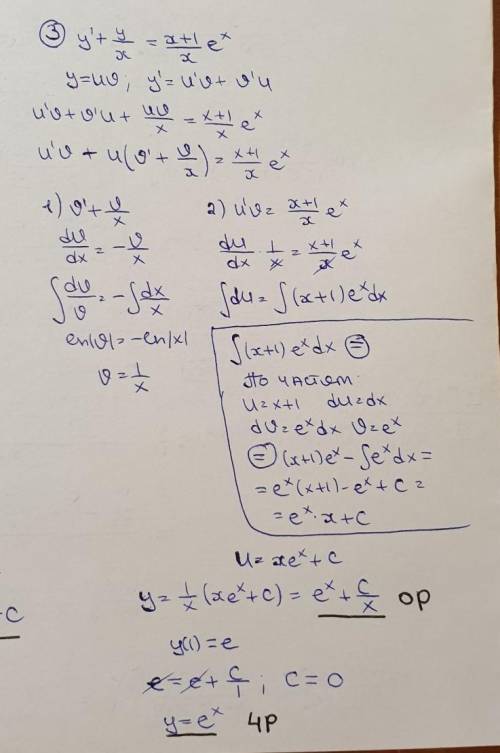 ③ y' + y/x = (x+1)/x e^x
y=uϑ; y'=u'ϑ+ϑ'u
u'ϑ+ϑ'u+ uϑ/x = (x+1)/x e^x
u'ϑ + u(ϑ' + ϑ/x) = (x+1)/x e^x
1) ϑ'+ ϑ/x
dϑ/dx = - ϑ/x
∫ dϑ/ϑ = -∫ dx/x
ln|ϑ|=-ln|x|
ϑ = 1/x
2) u'ϑ= (x+1)/x e^x
du/dx · 1/x = (x+1)/x e^x
∫du = ∫(x+1)e^x dx
∫(x+1) e^x dx ⊜
По частям:
u=x+1 du=dx
dϑ=e^x dx ϑ=e^x
⊜ (x+1)e^x - ∫e^x dx =
= e^x(x+1) - e^x + C =
= e^x · x + C
u= xe^x + C
y = 1/x (xe^x + C) = e^x + C/x ОР
y(1) = e
e = e + C/1 ; C = 0
y = e^x ЧР
+C